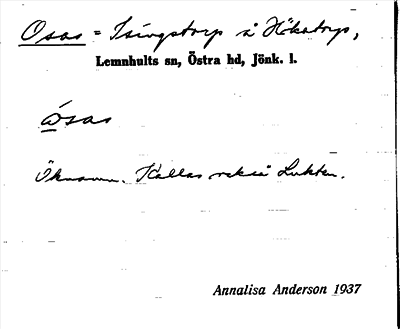 Osas = Isingstorp å Hökatorp,
Lemnhults sn, Östra hd, Jönk. l.
ōsas
Öknamn. Kallas också Lukten.
Annalisa Anderson 1937